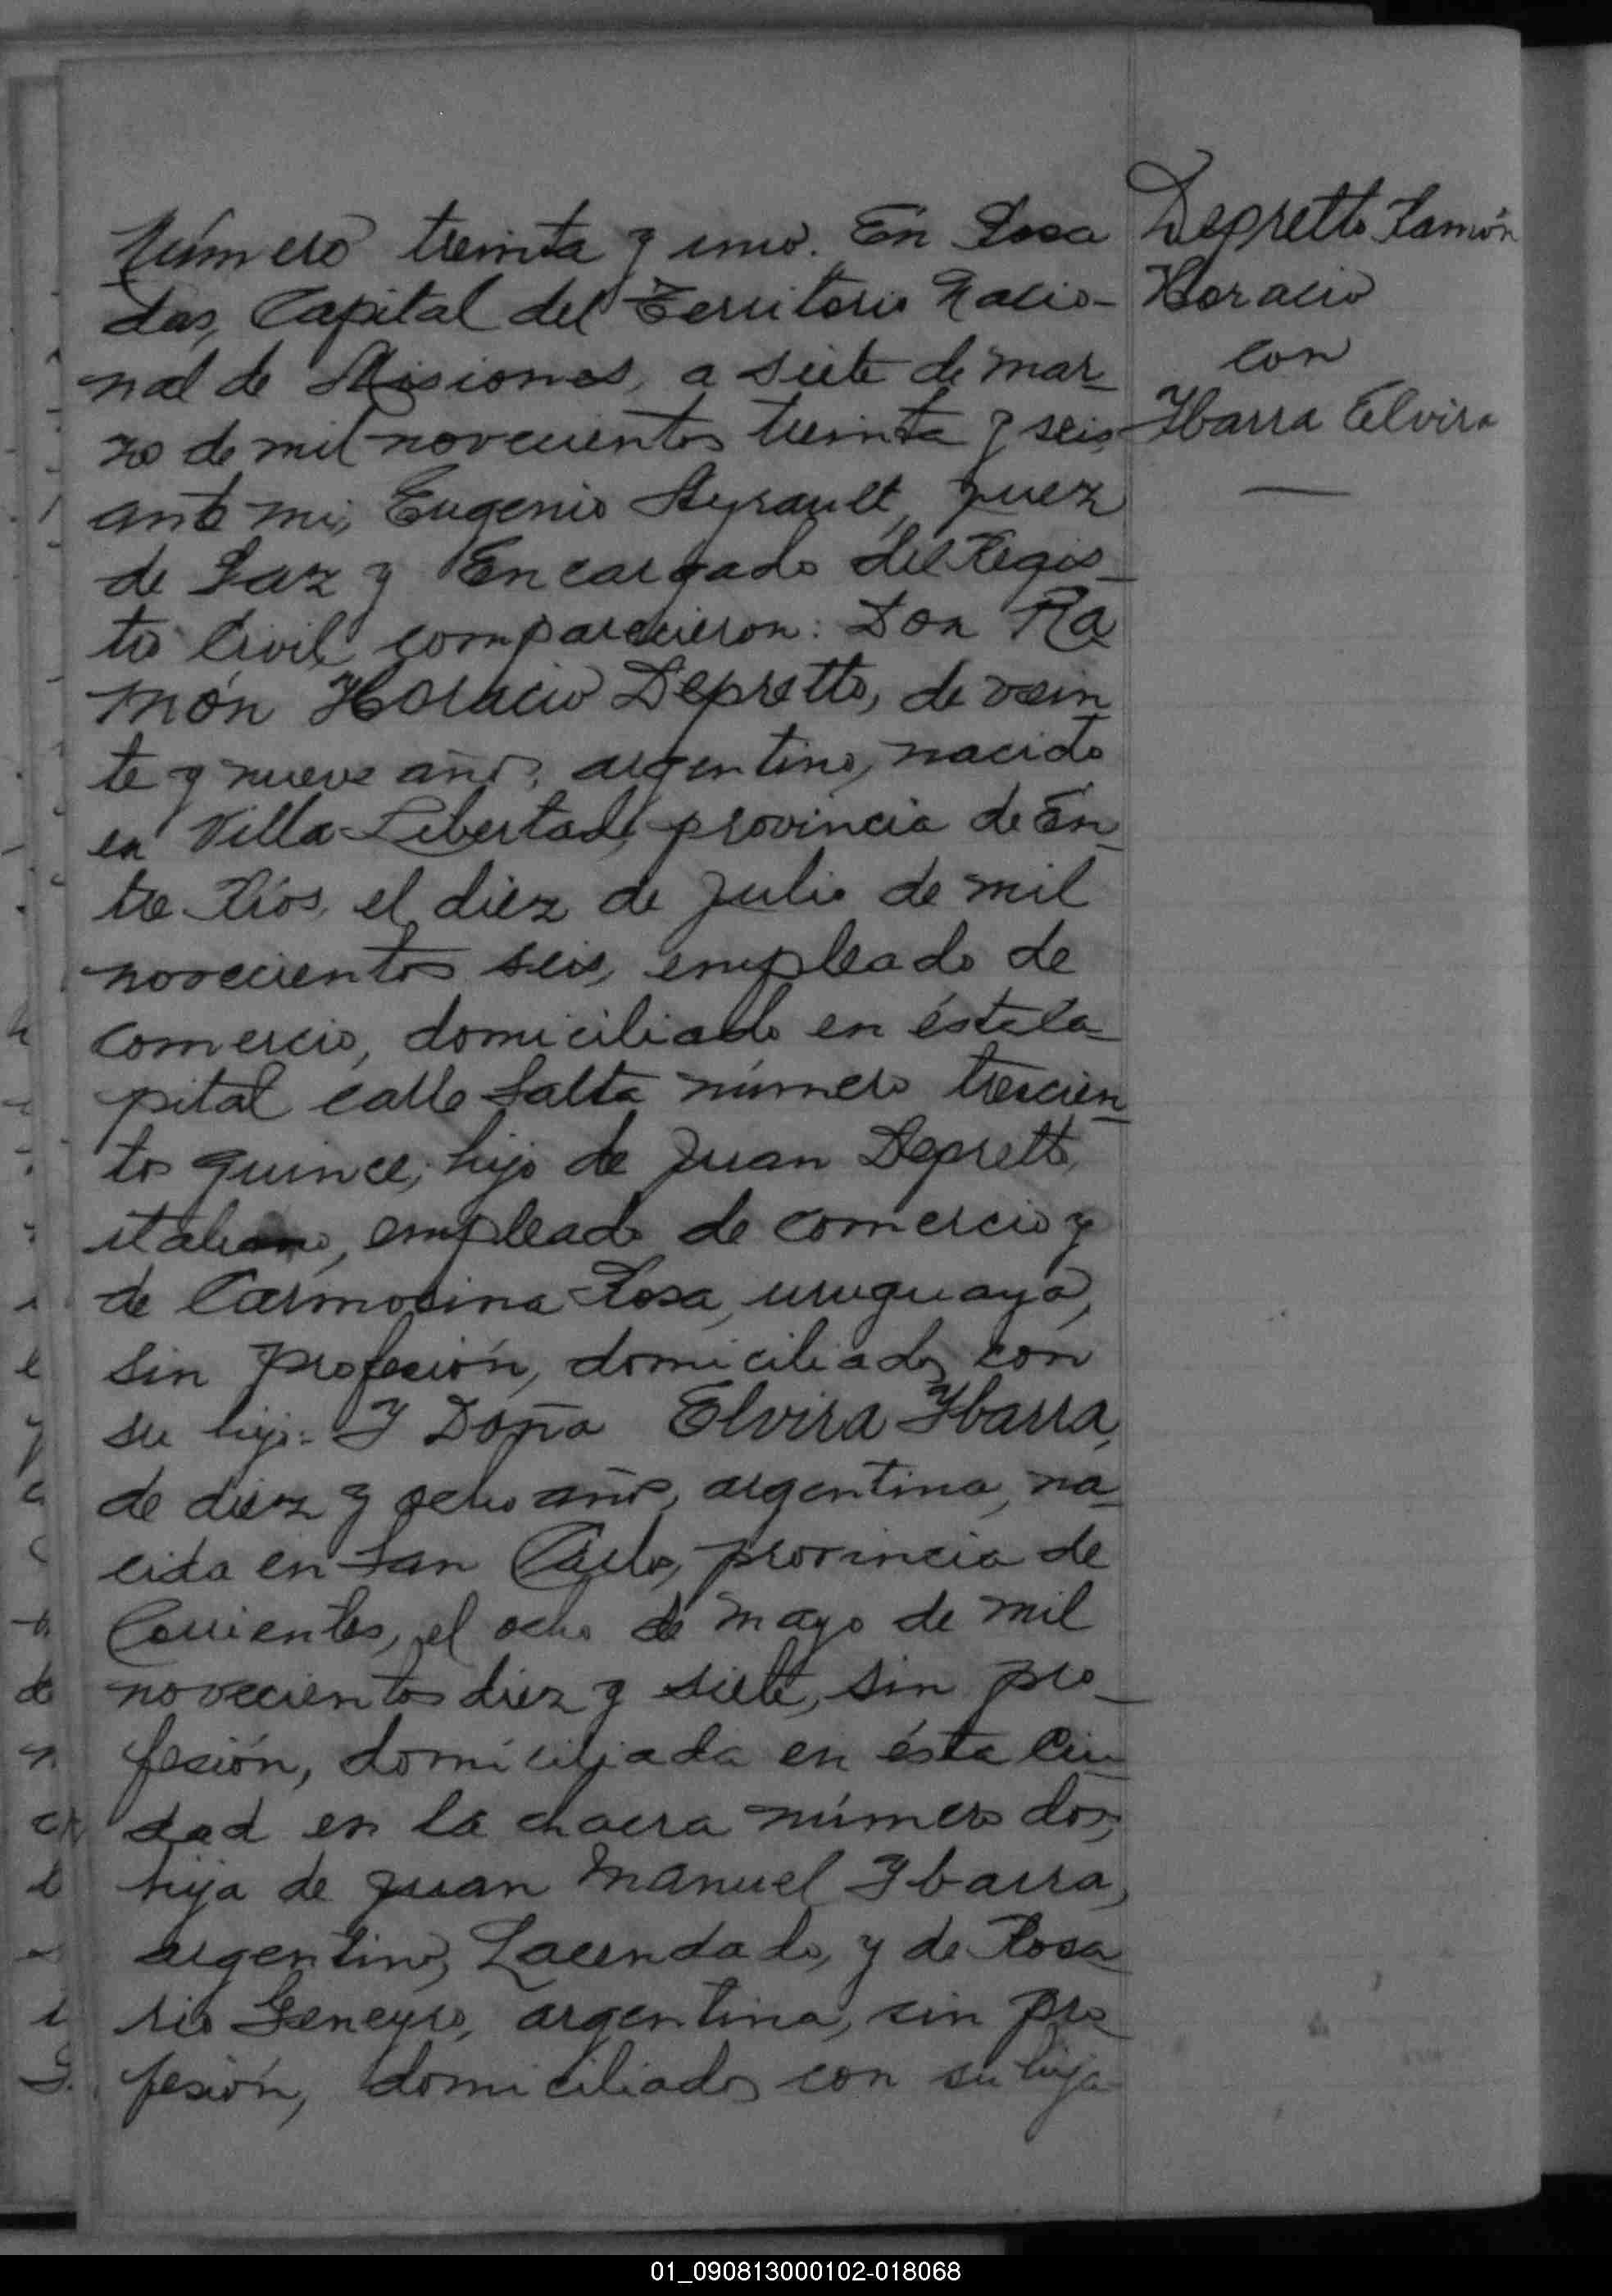 Número treinta y uno. En Posa
das, Capital del Territorio Nacio-
nal de Misiones, a siete de mar-
zo de mil novecientos treinta y seis,
ante mi, Eugenio Ayrault, Juez
de Paz y Encargado del Regis-
tro Civil comparecieron: Don Ra
món Horacio Depretto, de vein
te y nueve años, argentino, nacido
en Villa Libertad, provincia de En-
tre Ríos, el diez de Julio de mil
novecientos seis, empleado de
comercio, domiciliado en ésta Ca-
pital calle Salta número trescien-
tos quince, hijo de Juan Depretto,
italiano, empleado de comercio y
de Carmosina Rosa, uruguaya,
sin profesión, domiciliados con
su hijo: Y Doña Elvira Ybarra,
de diez y ocho años, argentina, na-
cida en San Carlos, provincia de
Corrientes, el ocho de mayo de mil
novecientos diez y siete, sin pro-
fesión, domiciliada en ésta Ciu-
dad en la chacra número dos,
hija de Juan Manuel Ybarra,
argentino, hacendado, y de Rosa
rio Geneyro, argentina, sin pro-
fesión, domiciliados con su hija
Depretto Ramón
Horacio
con
Ybarra Elvira
01_090813000102-018068